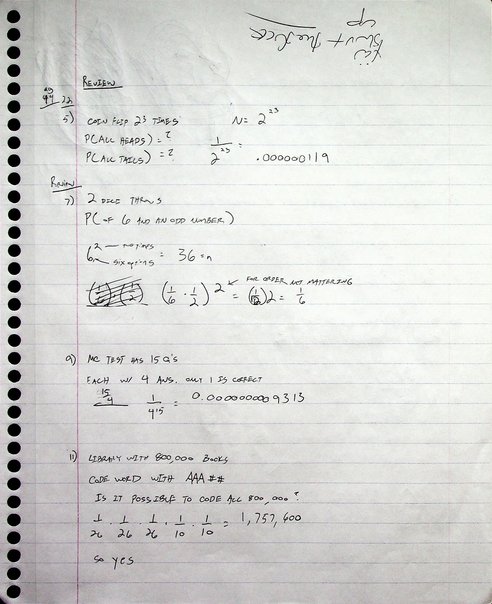 REVIEW
5) COIN FLIP 23 TIMES N = 2^23
P(ALL HEADS) = ?
P(ALL TAILS) = ? 1/2^23 = .000000119
REVIEW
7) 2 DICE THROWS
P(OF 6 AND AN ODD NUMBER)
6^2 = 36 = n
SIX OPTIONS
(1/6 · 1/2) 2 ← FOR ORDER NOT MATTERING = (1/12) 2 = 1/6
9) MC TEST HAS 15 Q'S
EACH W/ 4 ANS. ONLY 1 IS CORRECT
15/4 1/4^15 = 0.000000009313
11) LIBRARY WITH 800,000 BOOKS
CODE WORD WITH AAA##
IS IT POSSIBLE TO CODE ALL 800,000?
1/26 · 1/26 · 1/26 · 1/10 · 1/10 = 1,757,600
SO YES